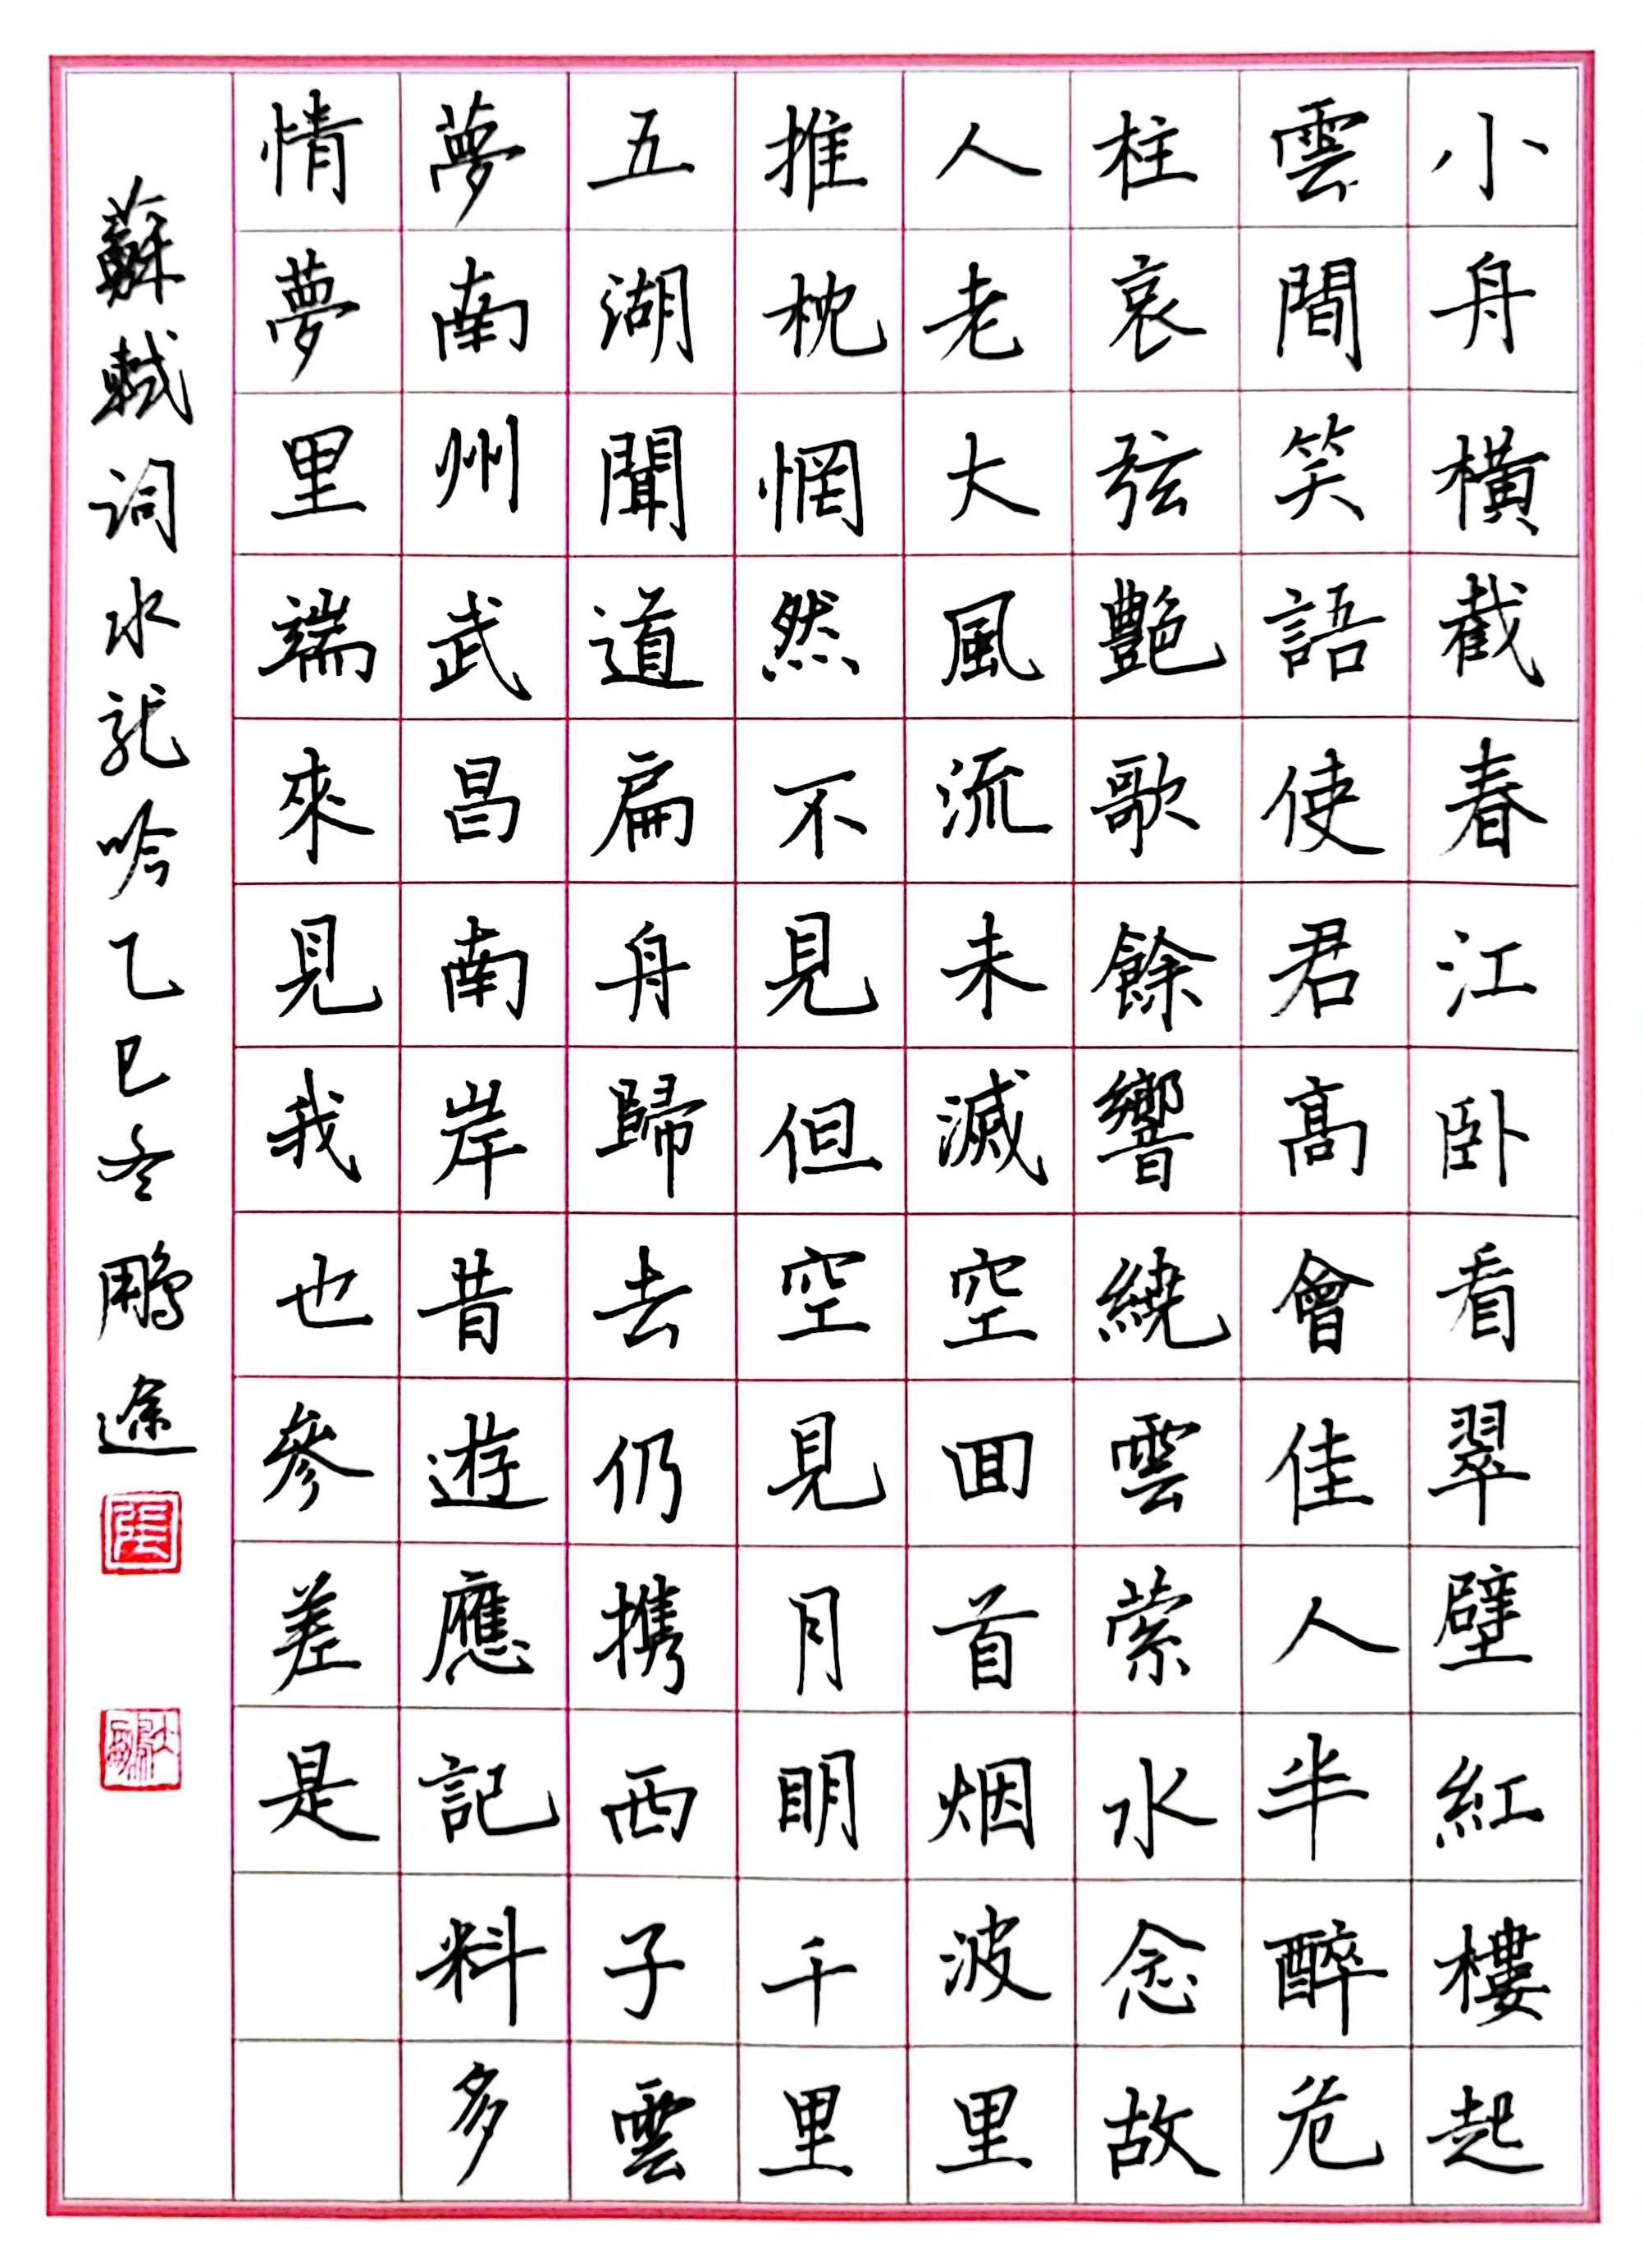 小舟橫截春江卧看翠壁紅樓起
雲間笑語使君高會佳人半醉危
柱哀弦艷歌餘響繞雲縈水念故
人老大風流未滅空回首烟波里
推枕惘然不見但空見月明千里
五湖聞道扁舟歸去仍攜西子雲
夢南州武昌南岸昔遊應記料多
情夢里端來見我也參差是
蘇軾词水龙吟乙巳冬鵬途